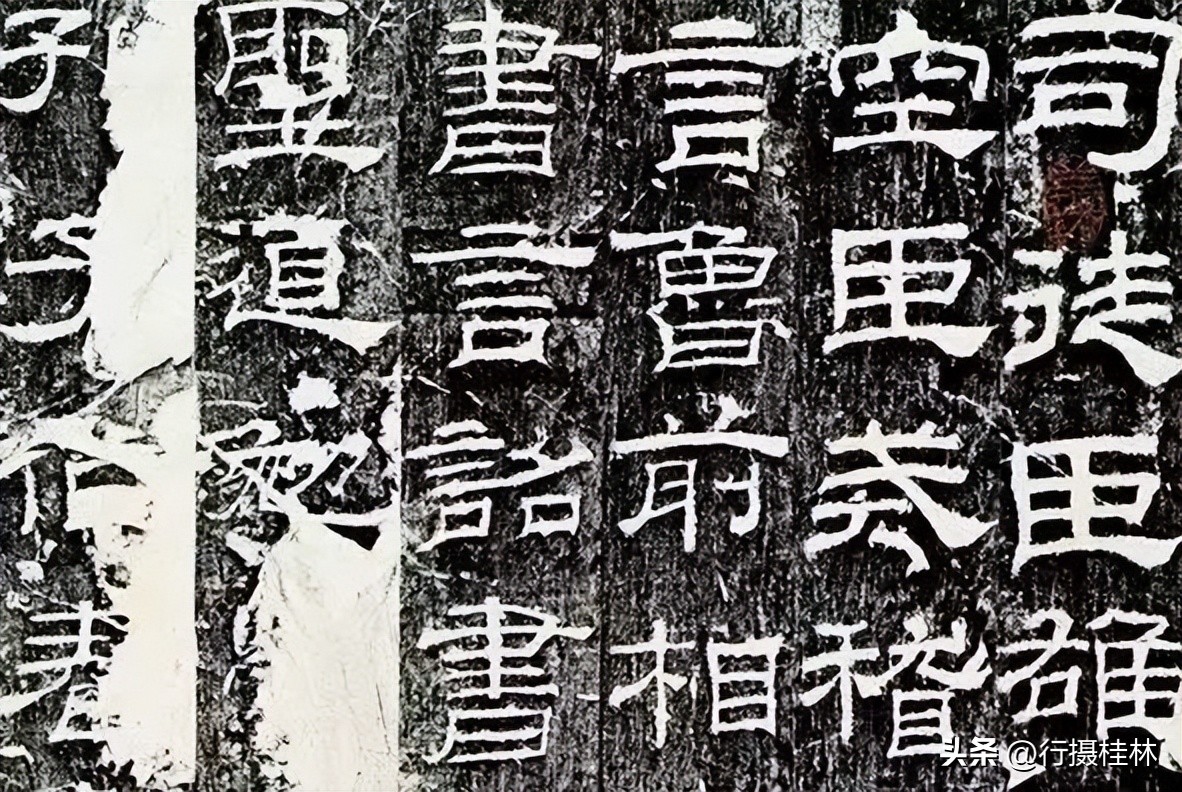 司徒臣雄
空臣戒稽
言魯前相
書言詔書
聖道勉
孔子作春
头条 @行摄桂林